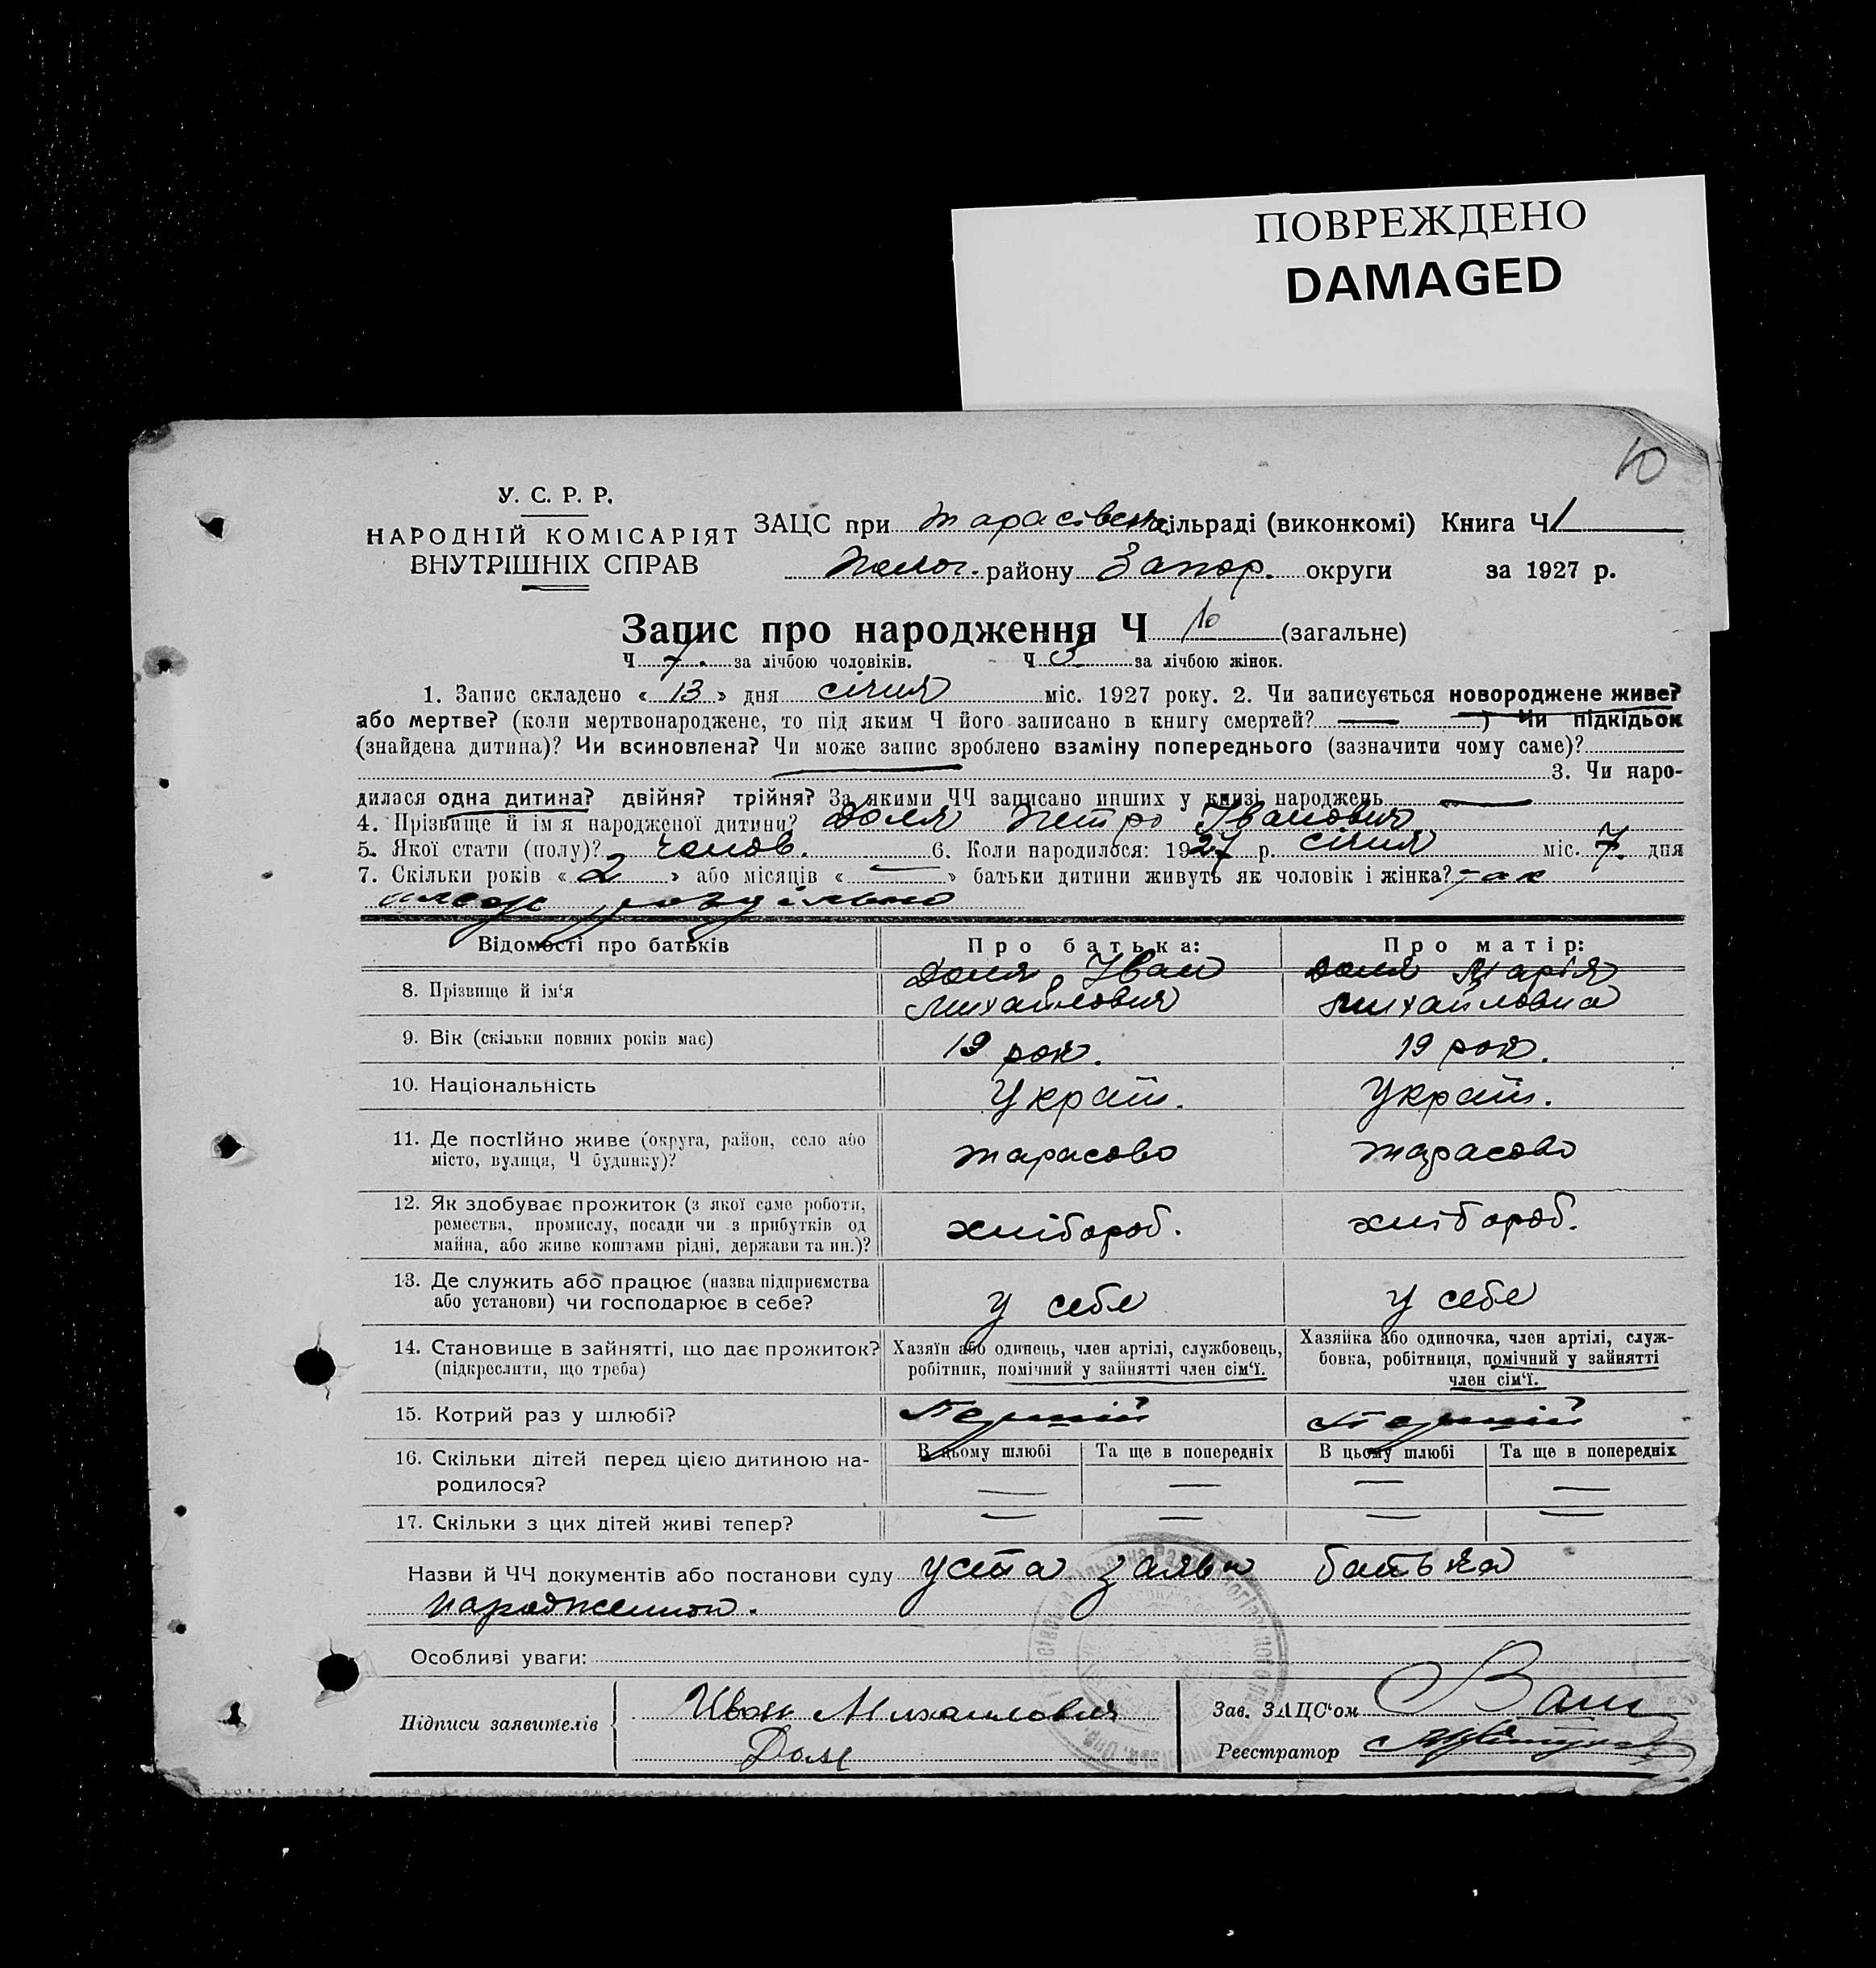 ПОВРЕЖДЕНО
DAMAGED
10
У. С. Р. Р.
НАРОДНІЙ КОМІСАРІЯТ
ВНУТРІШНІХ СПРАВ
ЗАЦС при Тарасівськ сільраді (виконкомі) Книга Ч 1
Полог. району Запор. округи за 1927 р.
Запис про народження Ч 10 (загальне)
Ч 7. за лічбою чоловіків. Ч 3 за лічбою жінок.
1. Запис складено « 13 » дня січня міс. 1927 року. 2. Чи записується новороджене живе?
або мертве? (коли мертвонароджене, то під яким Ч його записано в книгу смертей? — ) Чи підкідьок
(знайдена дитина)? Чи всиновлена? Чи може запис зроблено взаміну попереднього (зазначити чому саме)?
3. Чи наро-
дилася одна дитина? двійня? трійня? За якими ЧЧ записано инших у книзі народжень —
4. Прізвище й ім'я народженої дитини? Доля Петро Іванович
5. Якої стати (полу)? чолов. 6. Коли народилося: 1927 р. січня міс. 7. дня
7. Скільки років « 2 » або місяців « — » батьки дитини живуть як чоловік і жінка? так
Відомості про батьків
Про батька:
Про матір:
8. Прізвище й ім'я
Доля Іван
Михайлович
Доля Марія
Михайловна
9. Вік (скільки повних років має)
19 рок.
19 рок.
10. Національність
Україн.
Україн.
11. Де постійно живе (округа, район, село або
місто, вулиця, Ч будинку)?
Тарасово
Тарасово
12. Як здобуває прожиток (з якої саме роботи,
ремества, промислу, посади чи з прибутків од
майна, або живе коштами рідні, держави та ин.)?
хлібороб.
хлібороб.
13. Де служить або працює (назва підприємства
або установи) чи господарює в себе?
у себе
у себе
14. Становище в зайнятті, що дає прожиток?
(підкреслити, що треба)
Хазяїн або одинець, член артілі, службовець,
робітник, помічний у зайнятті член сім'ї.
Хазяйка або одиночка, член артілі, служ-
бовка, робітниця, помічний у зайнятті
член сім'ї.
15. Котрий раз у шлюбі?
Перший
Перший
16. Скільки дітей перед цією дитиною на-
родилося?
В цьому шлюбі
Та ще в попередніх
В цьому шлюбі
Та ще в попередніх
— — — —
17. Скільки з цих дітей живі тепер?
— — — —
Назви й ЧЧ документів або постанови суду уста заяви батька
народження.
Особливі уваги:
Підписи заявителів
Иван Михаилович
Доля
Зав. ЗАЦС'ом
Реєстратор